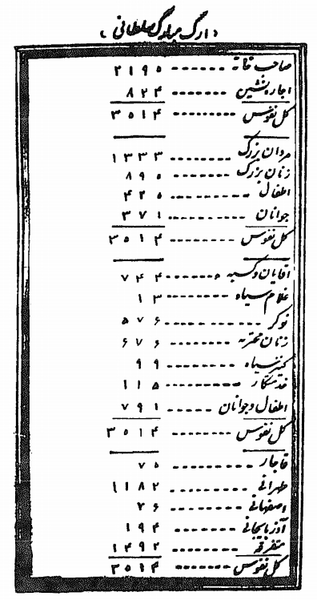 (ارگ مبارک سلطانی)
صاحب خانه ۲۱۹۰
اجاره نشین ۸۲۴
کل نفوس ۳۰۱۴
مردان بزرگ ۱۳۳۳
زنان بزرگ ۸۹۰
اطفال ۴۲۰
جوانان ۳۷۱
کل نفوس ۳۰۱۴
آقایان و کسبه ۷۴۴
غلام سیاه ۱۳
نوکر ۵۷۶
زنان محترمه ۶۷۶
کنیز سیاه ۹۹
خدمتکار ۱۱۵
اطفال و جوانان ۷۹۱
کل نفوس ۳۰۱۴
قاجار ۷۵
طهرانی ۱۱۸۲
اصفهانی ۲۶
آذربایجانی ۱۹۴
متفرقه ۱۴۹۲
کل نفوس ۳۰۱۴